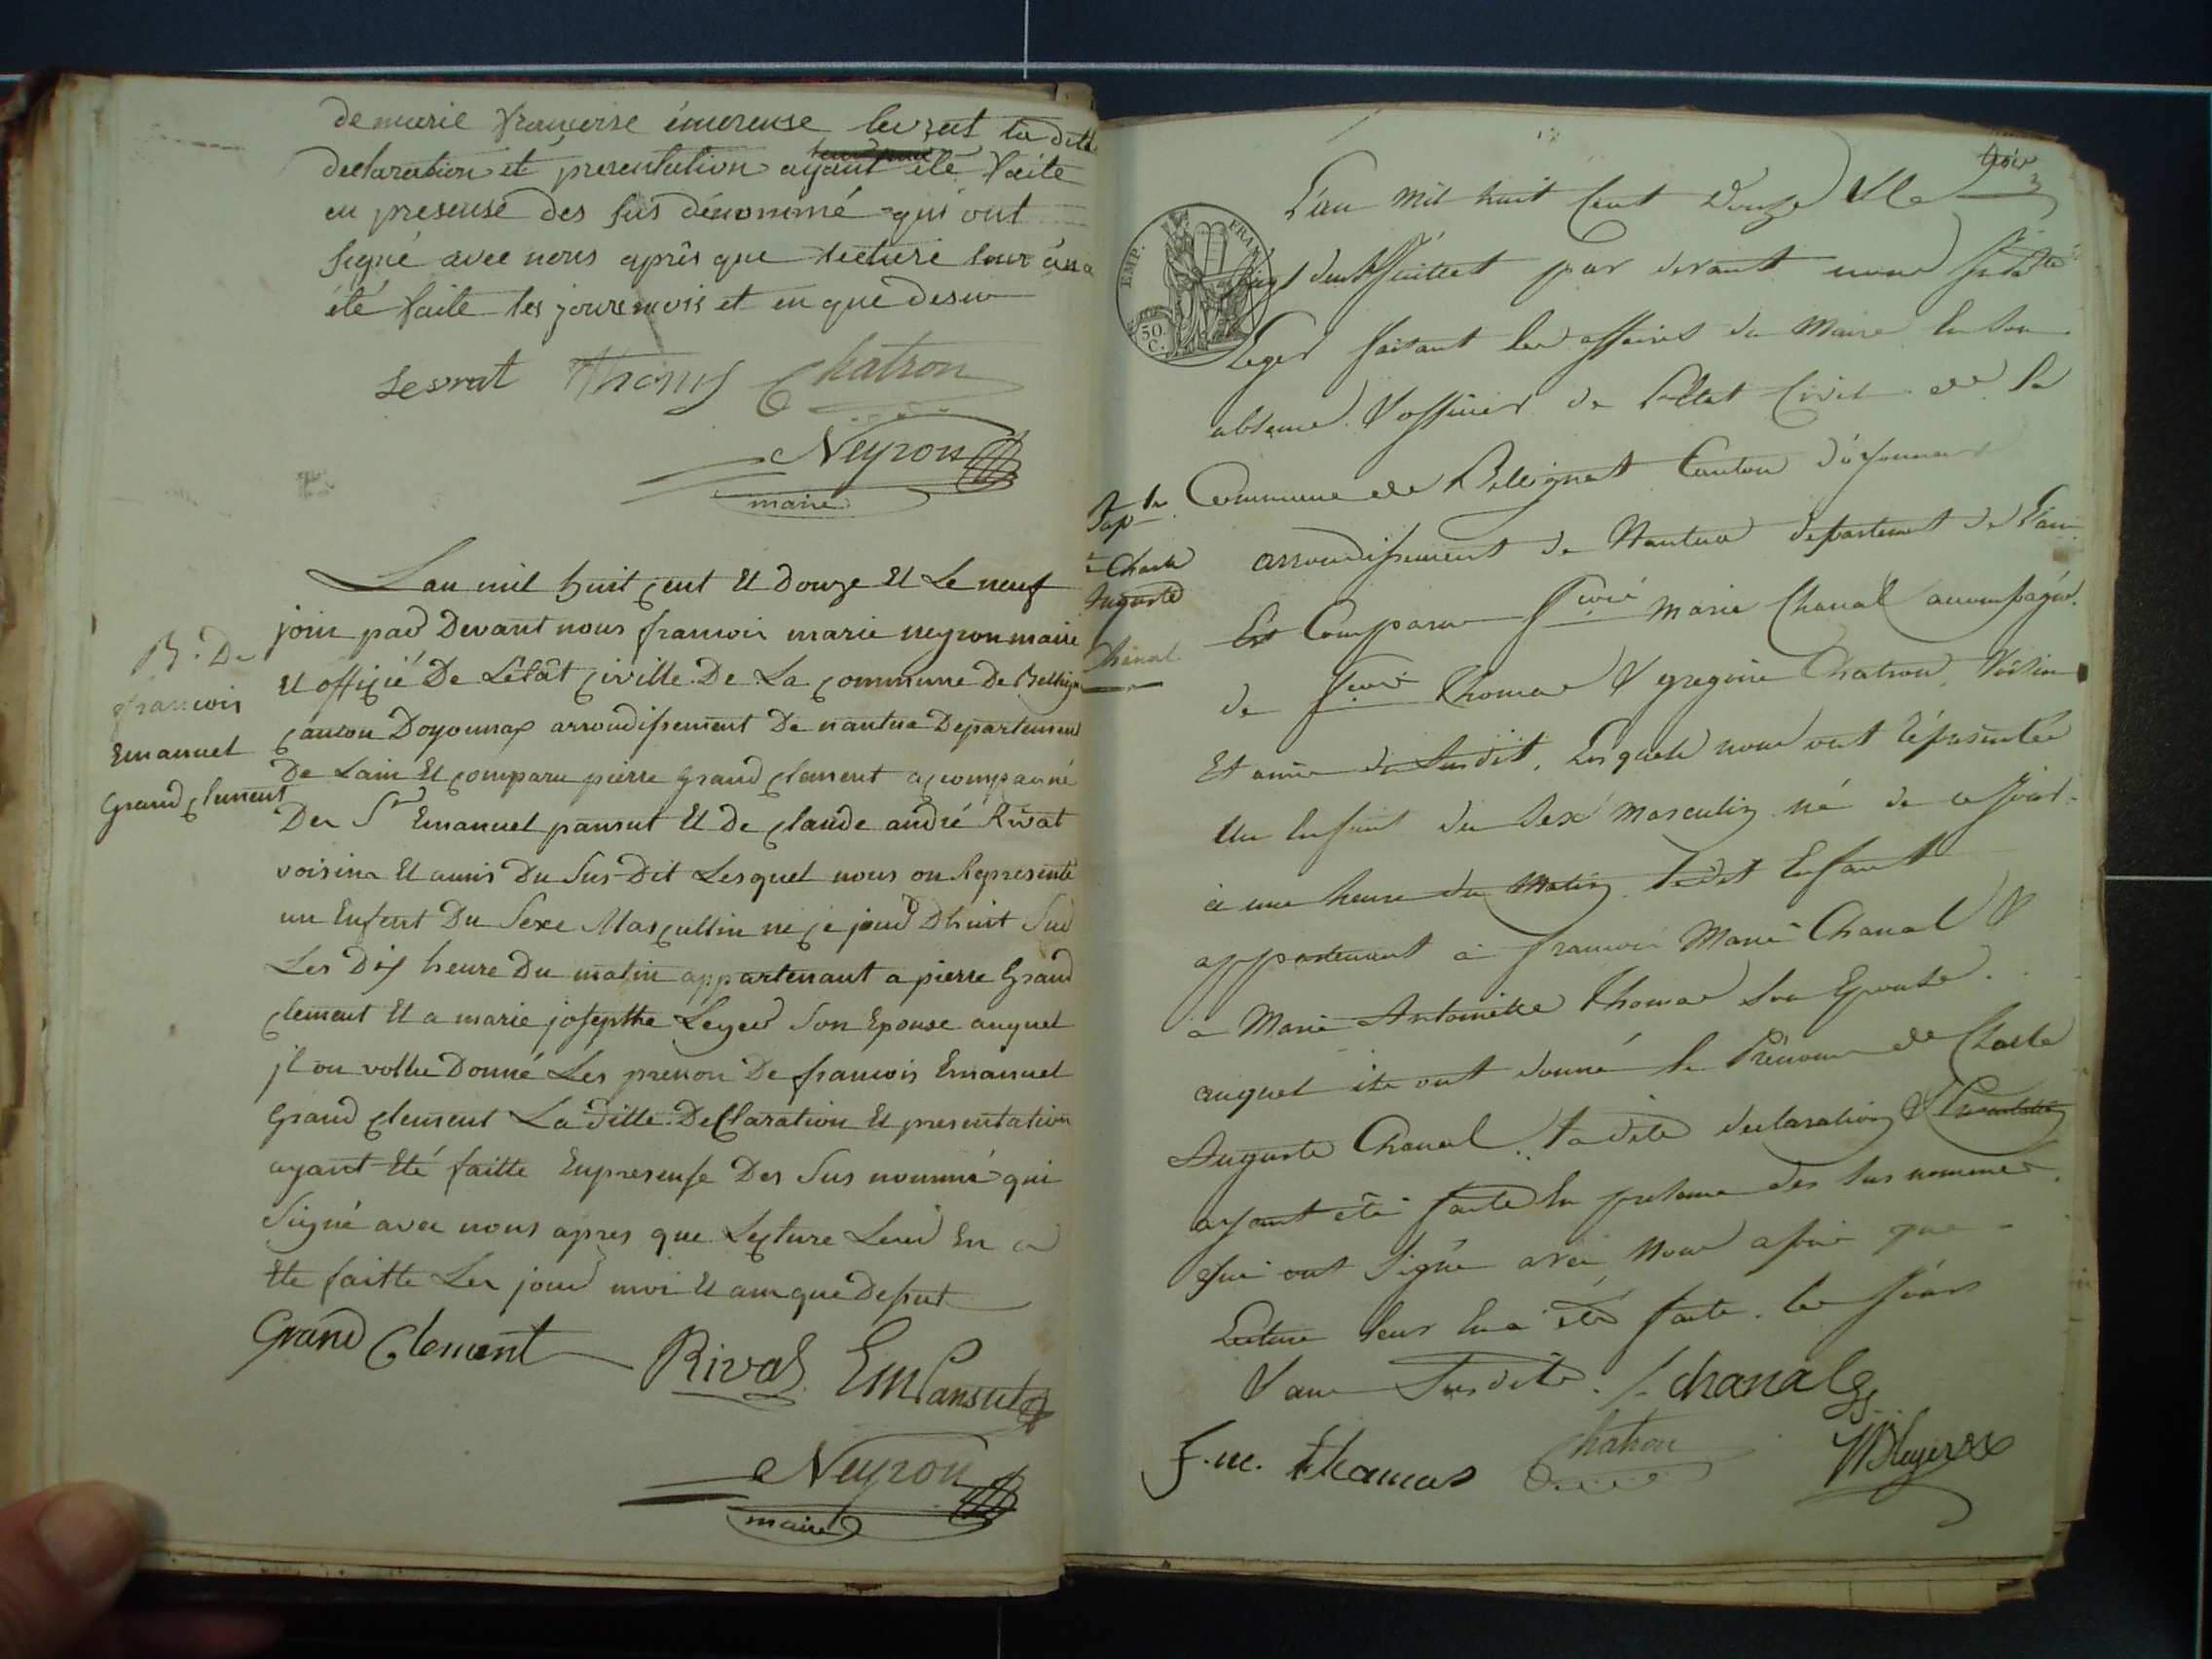 de marie françoise émereuse levrat la dite
declaration et presentation ayant été faite
en presense des sus dénommé qui ont
signé avec nous après que lecture leur en a
été faite les jour mois et en que desu
Levrat Thomas Chatron
Neyron
maire
Lan mil huit cent et Douze et Le neuf
join par Devant nous francois marie neyron maire
et offiçié De L'état civille De La commune De Bellign
canton Doyonnax arrondissement De nantua Departement
De Lain Et comparu pierre grand clement acompagné
Des Sr Emanuel pansut Et De claude andré Rivat
voisins Et amis Du Sus Dit Lesquel nous on Represente
un Enfent Du Sexe Mascullin ne ce jour Dhuit Sur
Les Dix heure Du matin appartenant a pierre Grand
clement Et a marie josepthe Leger Son Epouse auquel
jl on vollu Donné Les prenon De francois Emanuel
Grand clement La ditte Declaration Et presentation
ayant Eté faitte Enpresense Des Sus nommé qui
Signé avec nous apres que Lecture Leur En a
Ete faitte Les jour moi Et an que Desut
B. De
francois
Emanuel
Grand clement
Grand Clement Rival Em Pansut
Neyron
maire
trois
3
L'an mil huit Cent Douze & le
vingt deux Juillet par devant nous
Leger faisant les affaires du Maire en son
absence & officier de l'Etat Civil de la
Commune de Bellignat Canton d'oyonnax
arrondissement de Nantua departement de l'ain
Est Comparu fcois Marie Chanal accompagné
de fcois Thomas & gregoire Chatron Voisins
Et amis du Susdit, Lesquels nous ont représenté
Un Enfant du Sexe Masculin né de ce jour
à une heure du Matin. Ledit Enfant
appartenant à francois Marie Chanal &
à Marie Antoinette Thomas Son Epouse.
auquel ils ont donné le Prénom de Charle
Auguste Chanal. Ladite declaration & Presentation
ayant été faite En présence des Sus nommés.
qui ont Signé avec Nous après que
Lecture leur En a été faite. les jours
& an Susdits. f chanal
EMP. FRAN
50
C.
Charle
Auguste
Chanal
f. m. thomas Chatron Leger